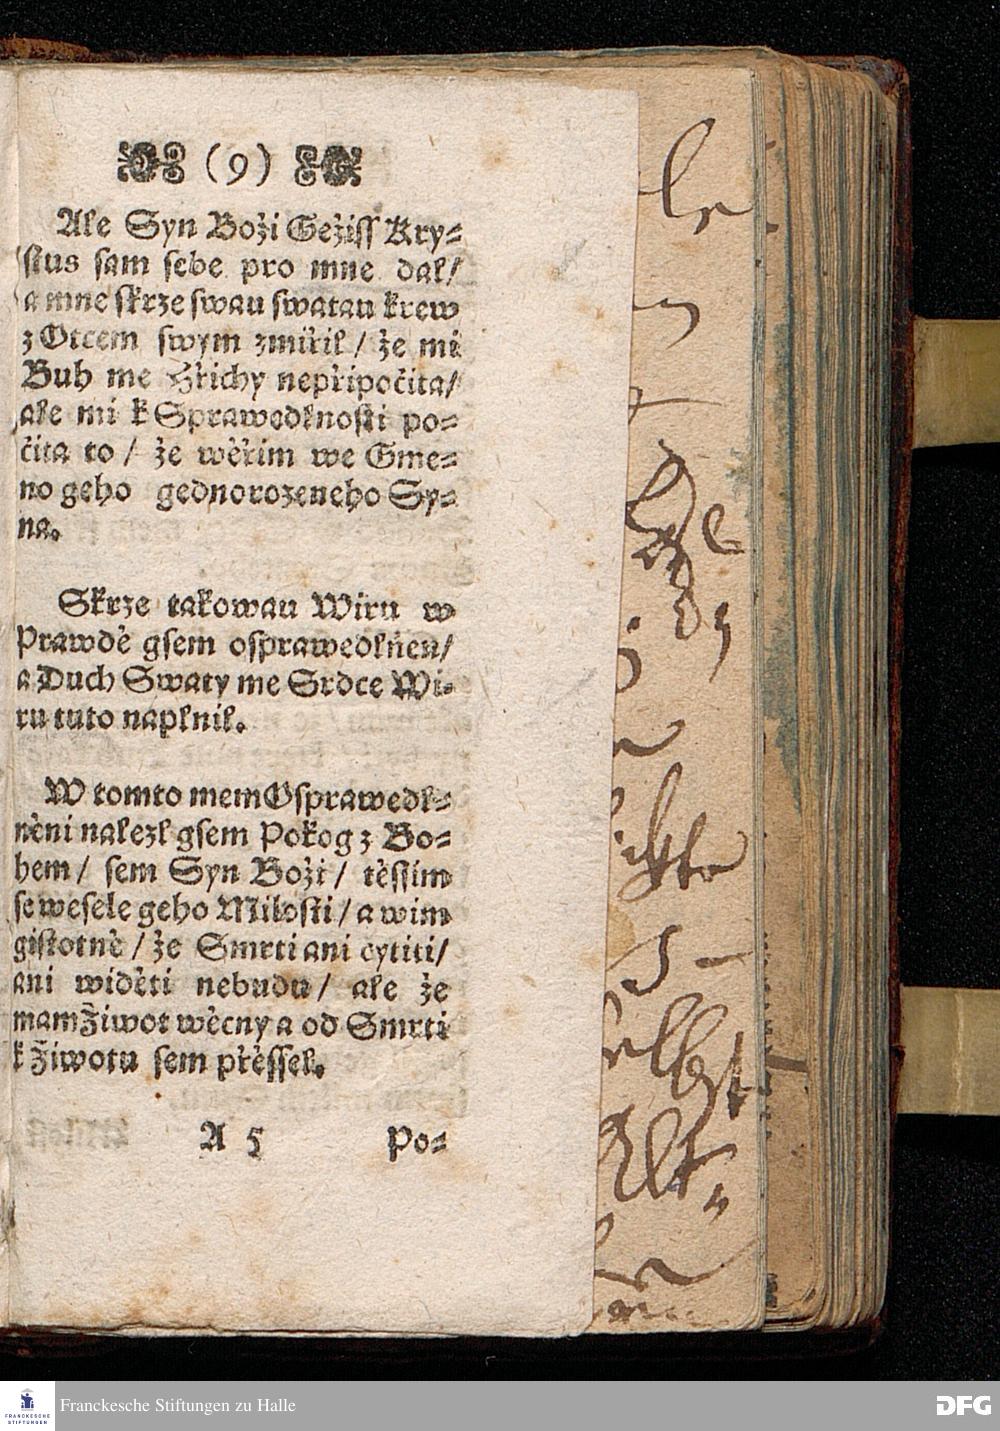 (9)
Ale Syn Boži Gežiſſ Kry⸗
ſtus ſam ſebe pro mne dal/
a mne ſkrze ſwau ſwatau krew
z Otcem ſwym zmiřil / že mi
Buh me Hřichy nepřipočita/
ale mi k Sprawedlnoſti po⸗
čita to / že wěřim we Gme⸗
no geho gednorozeneho Sy⸗
na.
Skrze takowau Wiru w
Prawdě gſem oſprawedlňen/
a Duch Swaty me Srdce Wi⸗
ru tuto naplnil.
W tomto mem Oſprawedl⸗
něni nalezl gſem Pokog z Bo⸗
hem / ſem Syn Boži / těſſim
ſe weſele geho Miloſti / a wim
giſtotně / že Smrti ani cytiti/
ani widěti nebudu / ale že
mam Žiwot wěcny a od Smrti
k Žiwotu ſem přěſſel.
A 5 Po⸗
Franckesche Stiftungen zu Halle
FRANCKESCHE
STIFTUNGEN
DFG